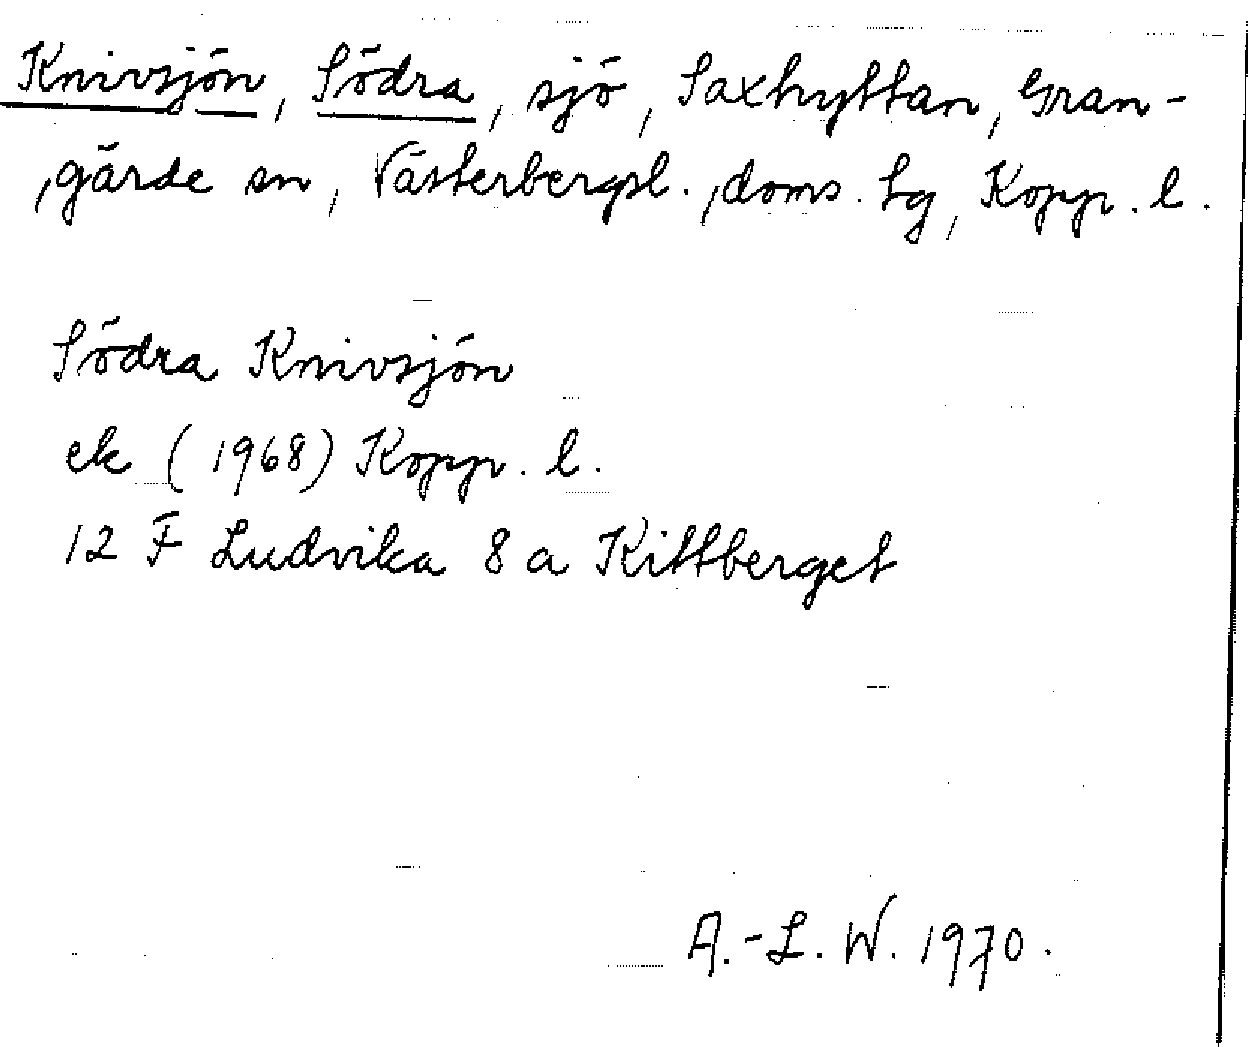 Knivsjön, Södra, sjö, Saxhyttan, Gran-
gärde sn, Västerbergsl. doms. hg, Kopp. l.
Södra Knivsjön
ek (1968) Kopp. l.
12 F Ludvika 8 a Kittberget
A.-L. W. 1970.